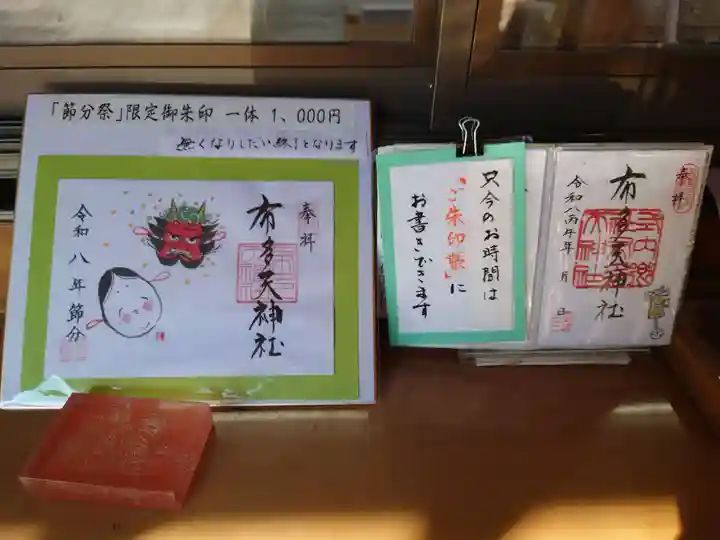 「節分祭」限定御朱印 一体 1、000円
無くなりしだい終了となります
奉祥
布多天神社
令和八年節分
只今のお時間は
"ご朱印帳"に
お書きできます
奉祥
布多天神社
令和八丙午年 月 日